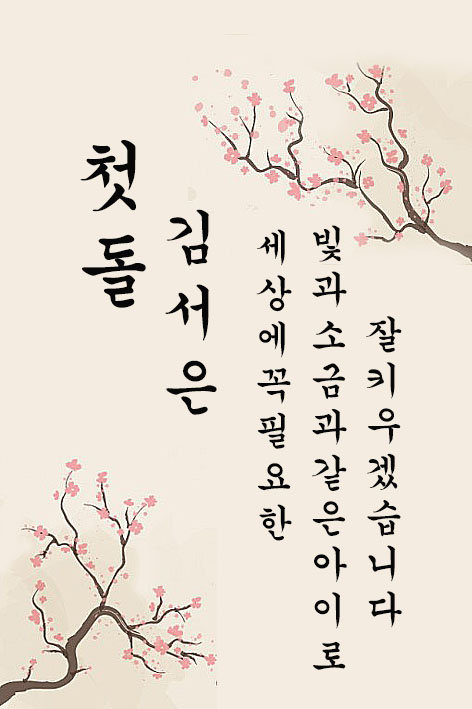 첫돌
김서은
세상에꼭필요한
빛과소금과같은아이로
잘키우겠습니다